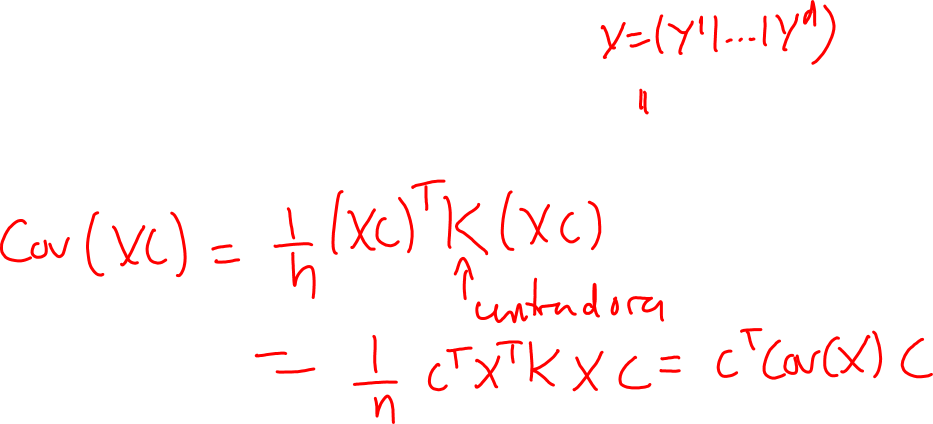 Y=(Y¹|...|Yᵈ)
"
Cov(XC) = 1/n (XC)ᵀK(XC)
↑centradora
= 1/n CᵀXᵀKXC = CᵀCov(X)C